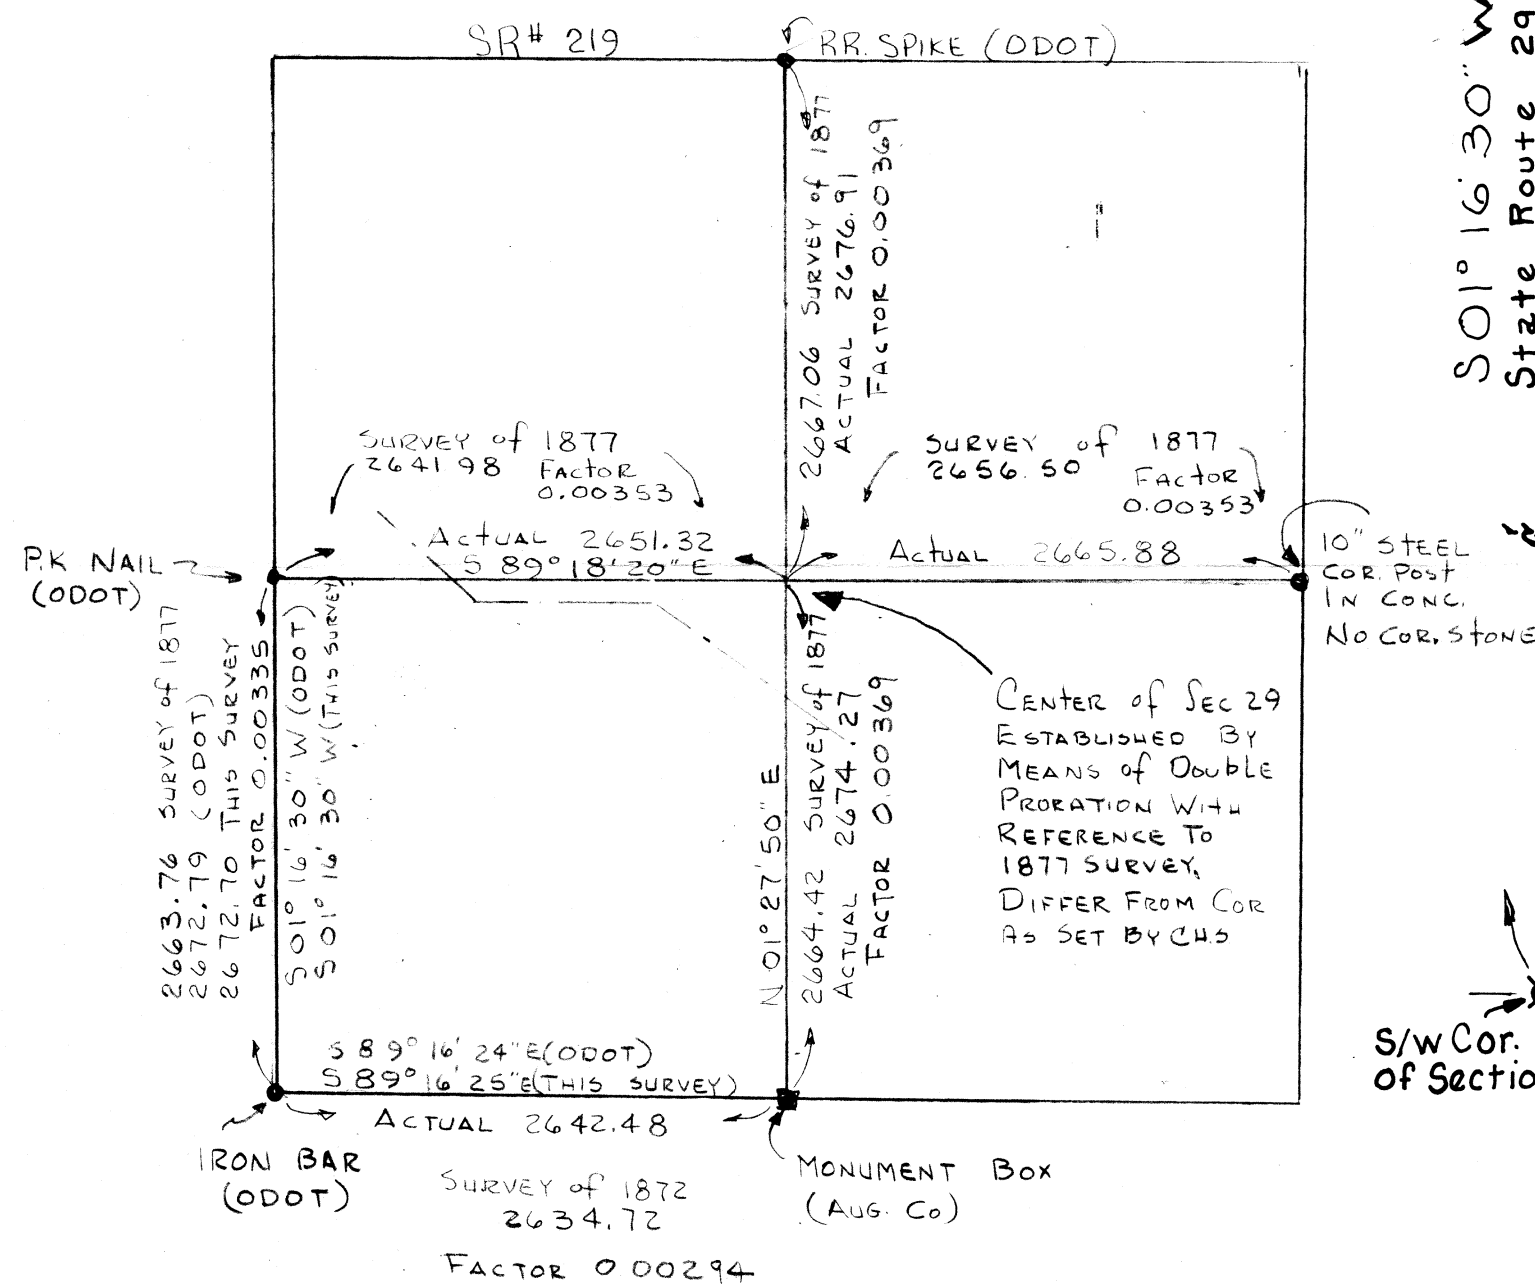 SR# 219
RR. SPIKE (ODOT)
2667.06 SURVEY of 1877
ACTUAL 2676.91
FACTOR 0.00369
SURVEY of 1877
2641 98 FACTOR
0.00353
SURVEY of 1877
2656.50 FACTOR
0.00353
ACTUAL 2651.32
S 89° 18' 20" E
ACTUAL 2665.88
P.K NAIL
(ODOT)
10" STEEL
COR. POST
IN CONC.
NO COR. STONE
2663.76 SURVEY of 1877
2672.79 (ODOT)
2672.70 THIS SURVEY
FACTOR 0.00335
S 01° 16' 30" W (ODOT)
S 01° 16' 30" W (THIS SURVEY)
N 01° 27' 50" E
2664.42 SURVEY of 1877
ACTUAL 2674.27
FACTOR 0.00369
CENTER of SEC 29
ESTABLISHED BY
MEANS of DOUBLE
PRORATION WITH
REFERENCE TO
1877 SURVEY,
DIFFER FROM COR
AS SET BY C.H.S
S 89° 16' 24" E (ODOT)
S 89° 16' 25" E (THIS SURVEY)
ACTUAL 2642.48
IRON BAR
(ODOT)
SURVEY of 1872
2634.72
FACTOR 0 00294
MONUMENT BOX
(AUG. CO)
S 01° 16' 30" W
State Route 29
S/W Cor.
Of Sectio